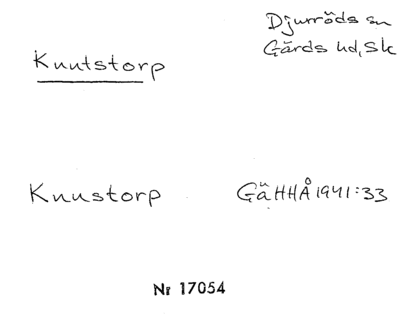 Djurröds sn
Knutstorp
Gärds hd, Sk
Knustorp GäHHÅ 1941:33
Nr 17054